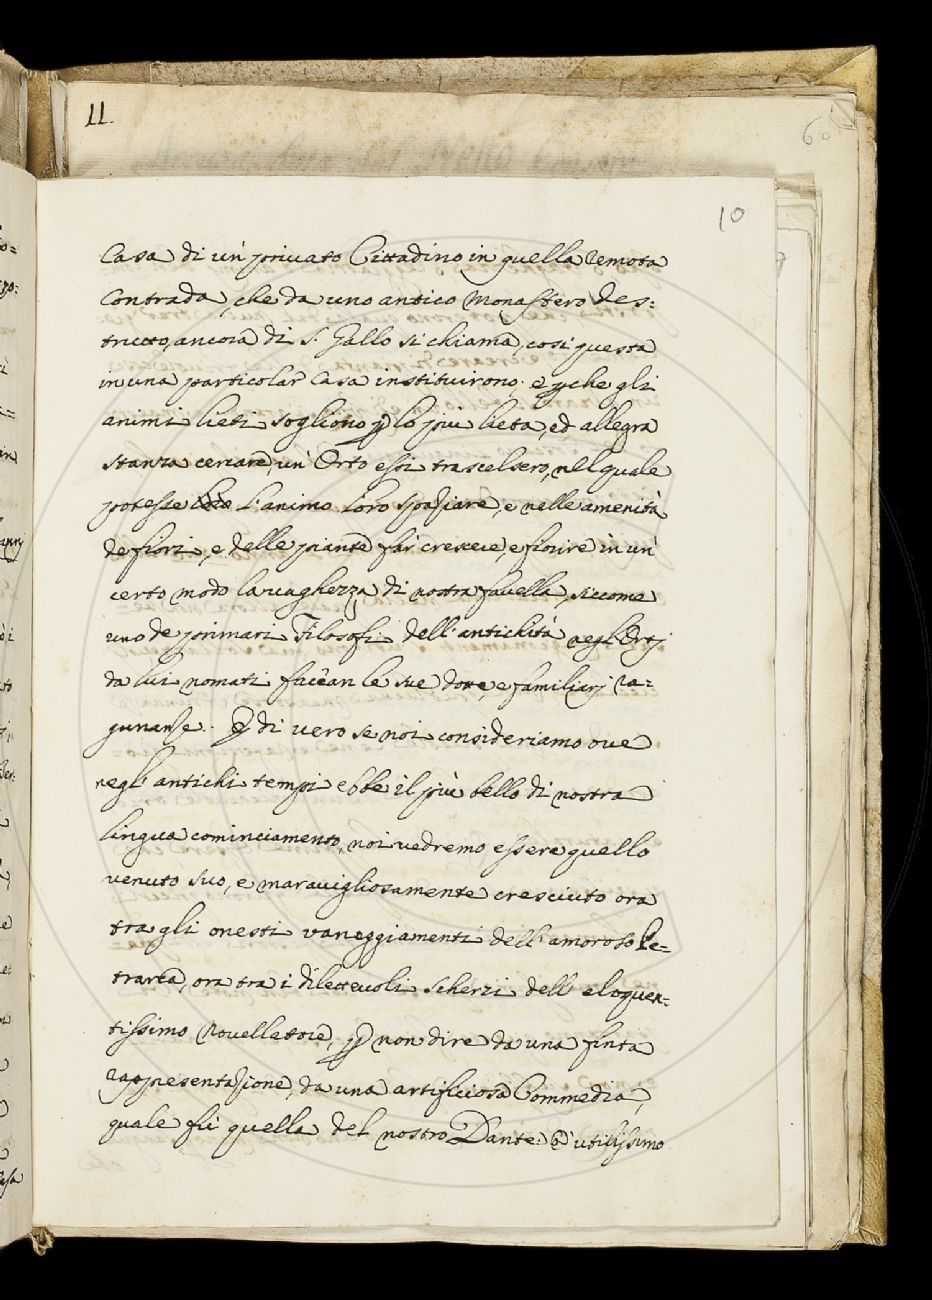 11.
60
10
Casa di un' privato Cittadino in quella remota
Contrada, che da uno antico Monastero des:
trutto, ancora di S. Gallo si chiama, così questa
in una particolar Casa instituirono. e p che gli
animi lieti sogliono p lo più lieta, ed allegra
stanza cercare, un' Orto essi trascelsero, nell quale
potesse l'animo loro spaziare, e nelle amenità
de fiori, e delle piante far crescere, e fiorire in un'
certo modo la vaghezza di nostra favella, siccome
uno de primari Filosofi dell'antichità negl'Orti
da lui nomati facean le sue dotte, e familiarj ra-
gunanse. E di vero se noi consideriamo ove
negl' antichi tempi ebbe il più bello di nostra
lingua cominciamento, noi vedremo essere quello
venuto suo, e maravigliosamente cresciuto ora
tra gli onesti vaneggiamenti dell'amoroso Pe=
trarca, ora tra i dilettevoli scherzi dell' eloquen-
tissimo Novellatore, p non dire da una finta
rappresentazione, da una artificiosa Commedia,
quale fù quella del nostro Dante. È utilissimo